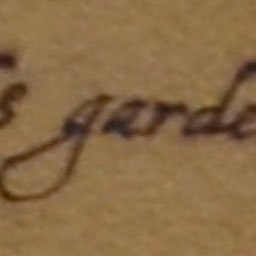 s garde